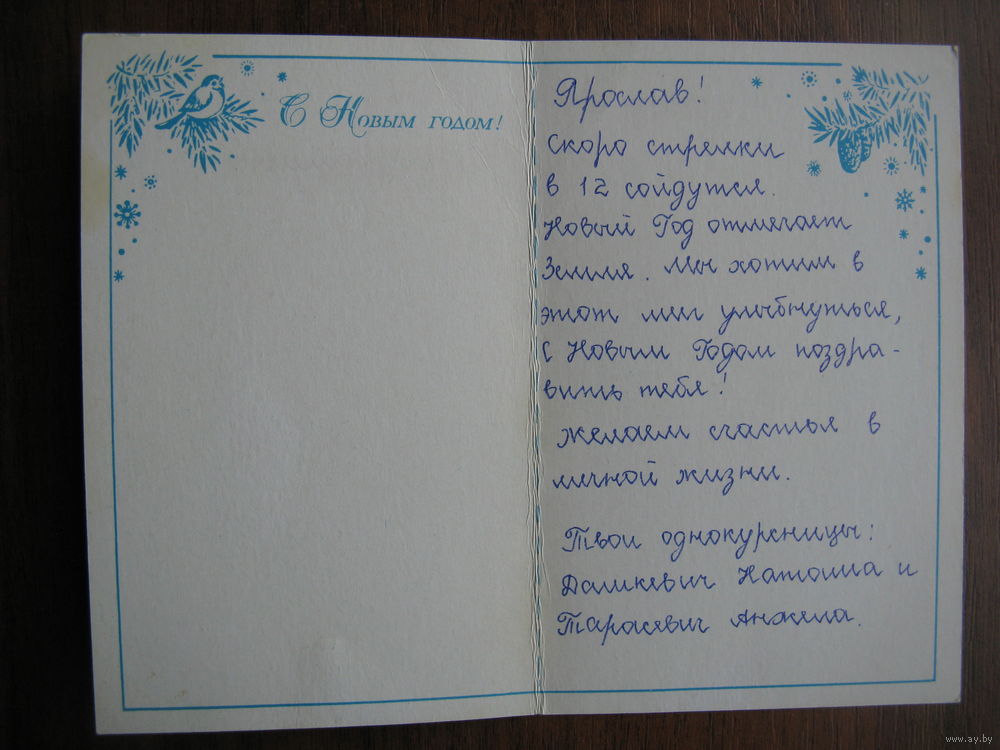 С Новым годом!
Ярослав!
Скоро стрелки
в 12 сойдутся.
Новый Год отмечает
Земля. Мы хотим в
этот миг улыбнуться,
С Новым Годом поздра-
вить тебя!
Желаем счастья в
личной жизни.
Твои однокурсницы:
Дашкевич Наташа и
Тарасевич Анжела.
www.ay.by